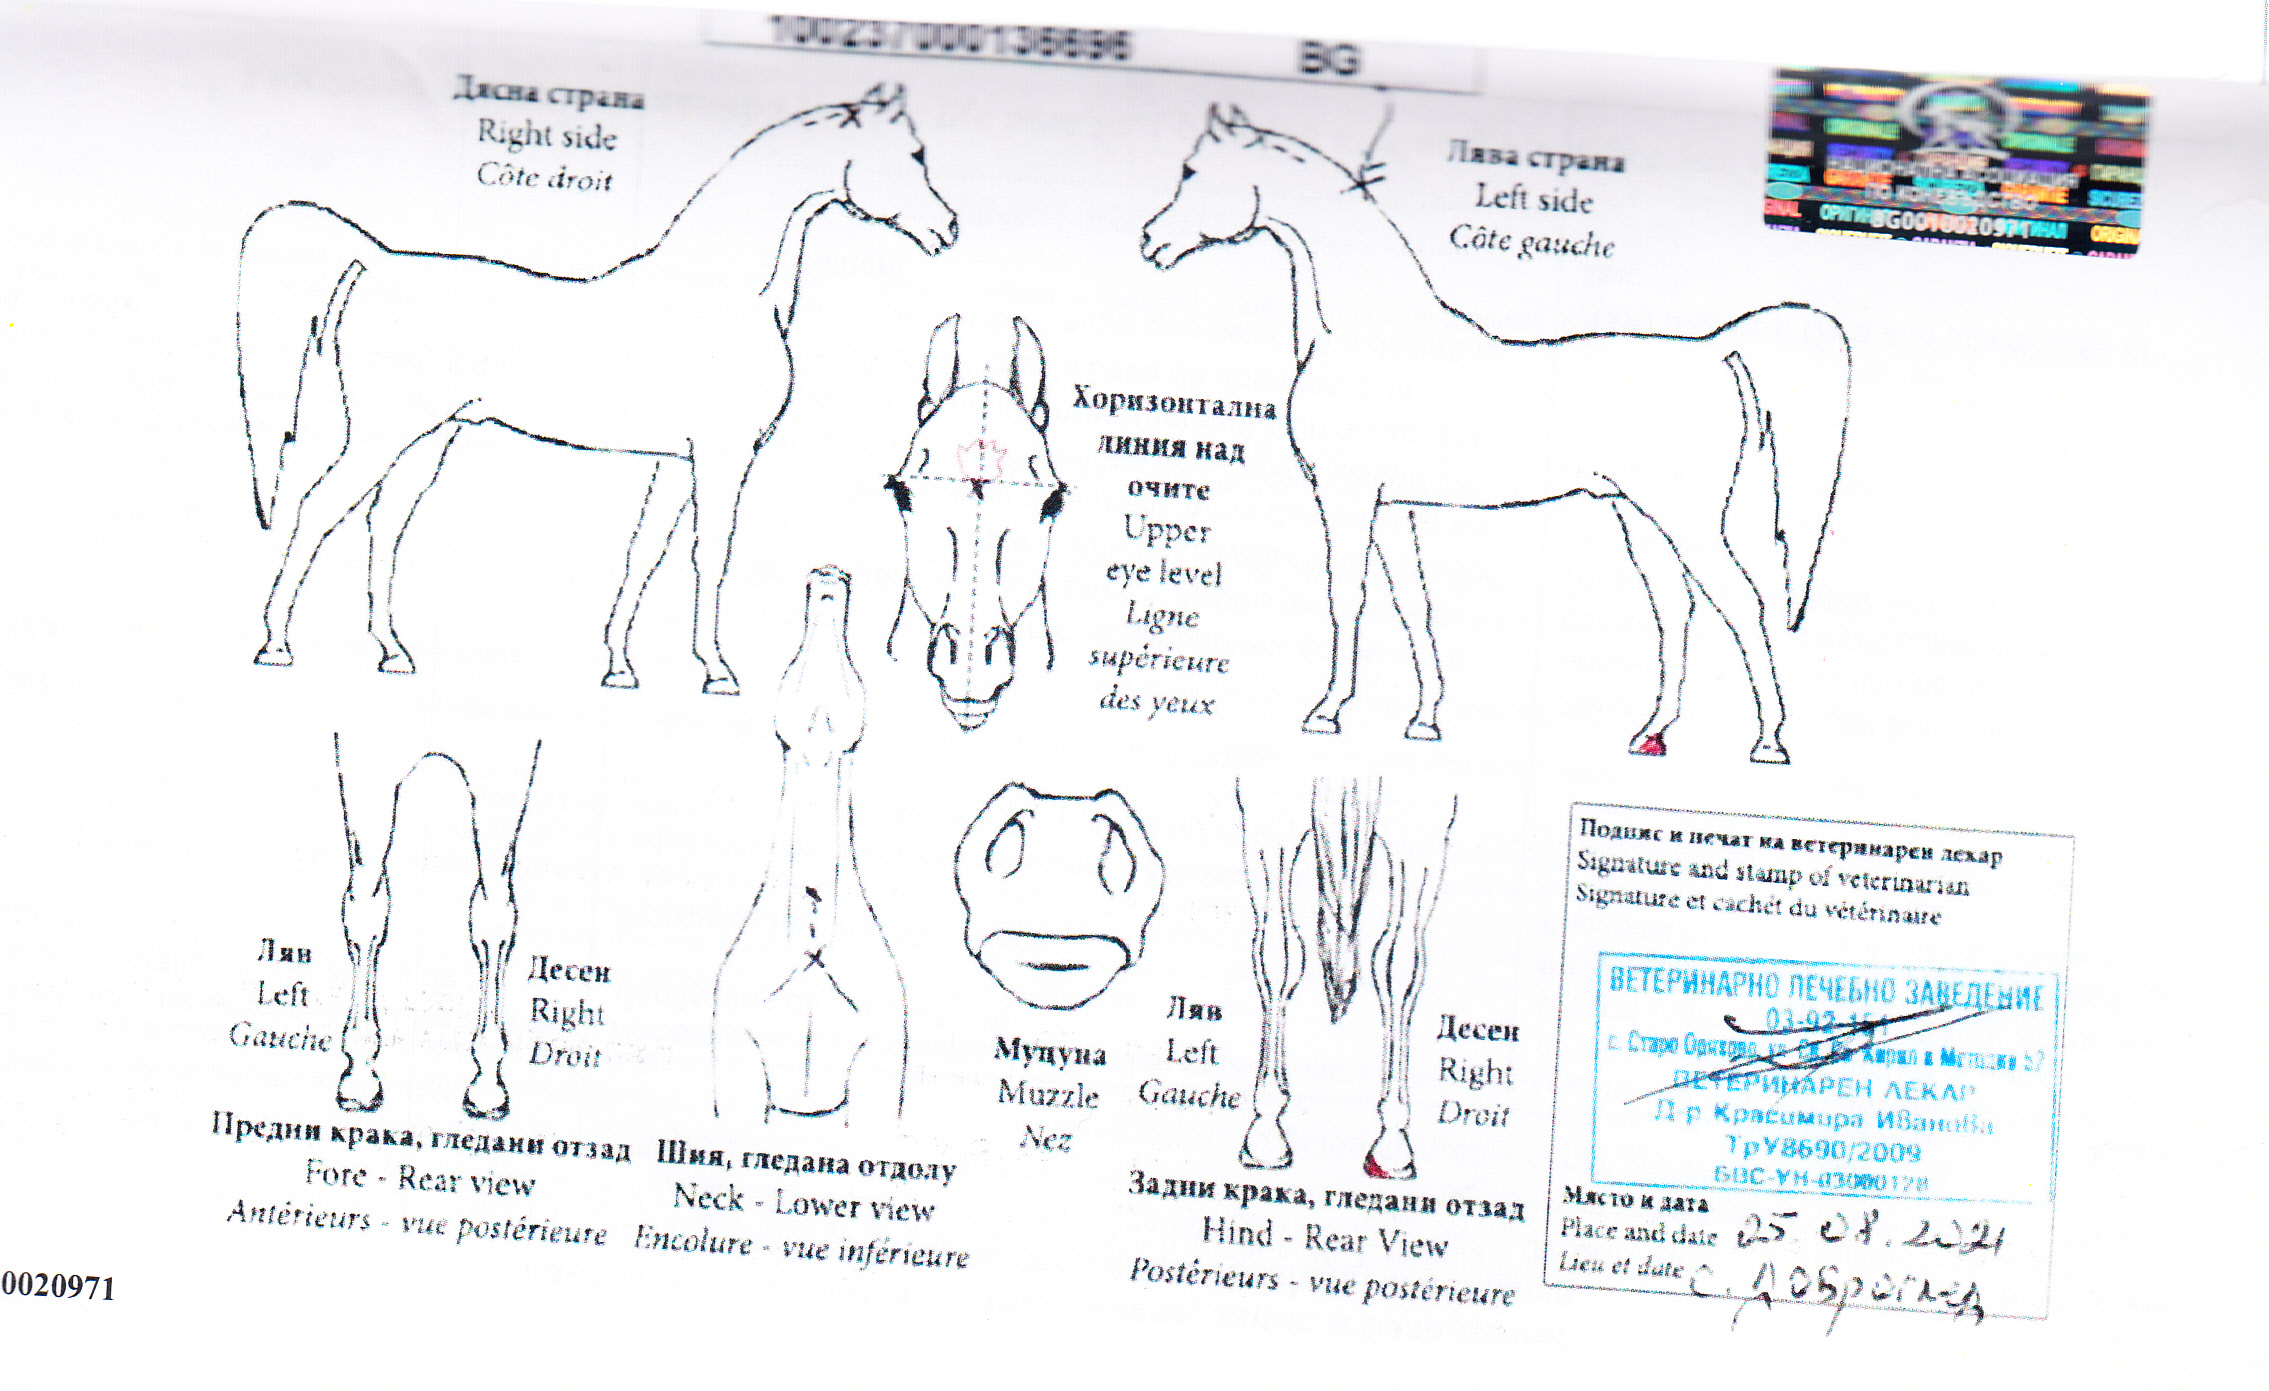 100237000136696 BG
Дясна страна
Right side
Côte droit
Лява страна
Left side
Côte gauche
НАЦИОНАЛНА АСОЦИАЦИЯ
ПО КОНЕВЪДСТВО
BG0010020971
Хоризонтална
линия над
очите
Upper
eye level
Ligne
supérieure
des yeux
Ляв
Left
Gauche
Десен
Right
Droit
Предни крака, гледани отзад
Fore - Rear view
Antérieurs - vue postérieure
Шия, гледана отдолу
Neck - Lower view
Encolure - vue inférieure
Муцуна
Muzzle
Nez
Ляв
Left
Gauche
Десен
Right
Droit
Задни крака, гледани отзад
Hind - Rear View
Postérieurs - vue postérieure
Подпис и печат на ветеринарен лекар
Signature and stamp of veterinarian
Signature et cachét du vétérinaire
ВЕТЕРИНАРНО ЛЕЧЕБНО ЗАВЕДЕНИЕ
03-92-151
с. Старо Оряхово, ул. Св. Св. Кирил и Методий 57
ВЕТЕРИНАРЕН ЛЕКАР
Д-р Красимира Иванова
ТрУ8690/2009
БВС-УН-03000128
Място и дата
Place and date 25.08.2021
Lieu et date с. Доброглед
0020971